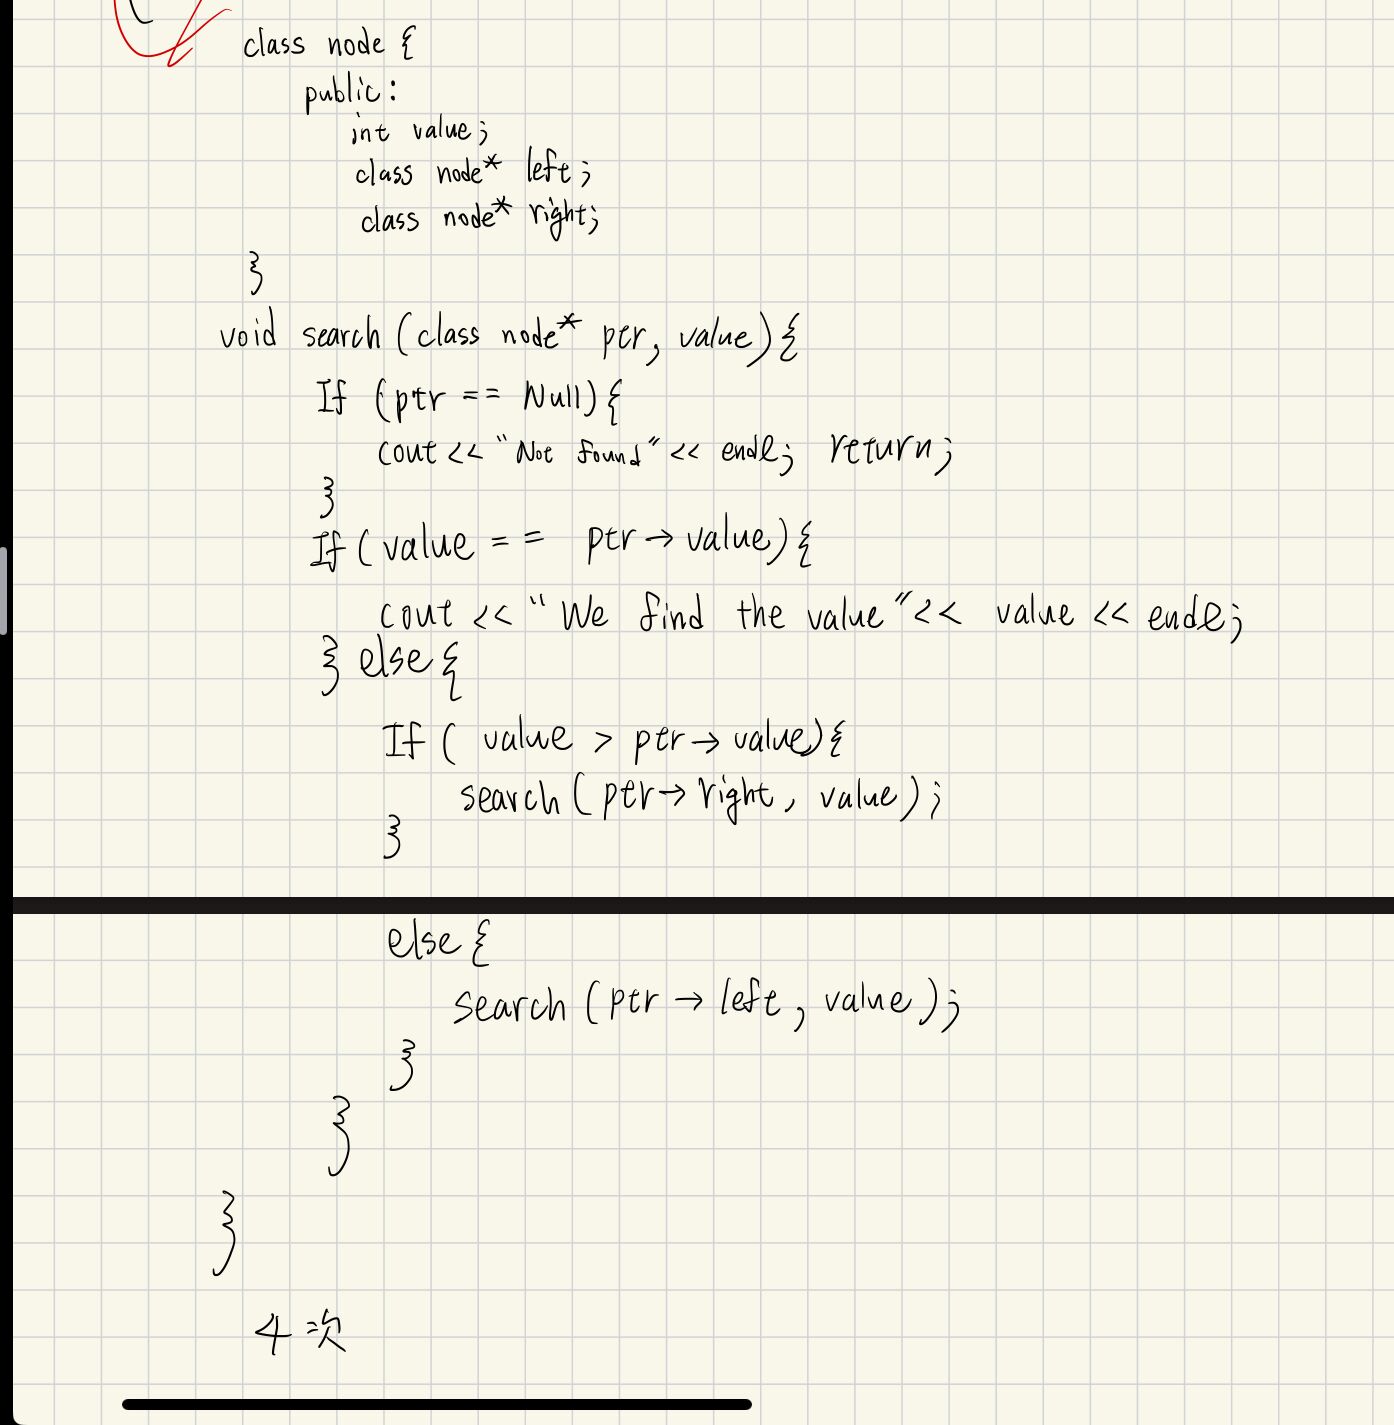 class node {
public:
int value;
class node* left;
class node* right;
}
void search (class node* ptr, value) {
If (ptr == Null) {
cout << "Not found" << endl; return;
}
If (value == ptr → value) {
cout << "We find the value" << value << endl;
} else {
If ( value > ptr → value) {
search ( ptr → right, value);
}
else {
search (ptr → left, value);
}
}
}
4次